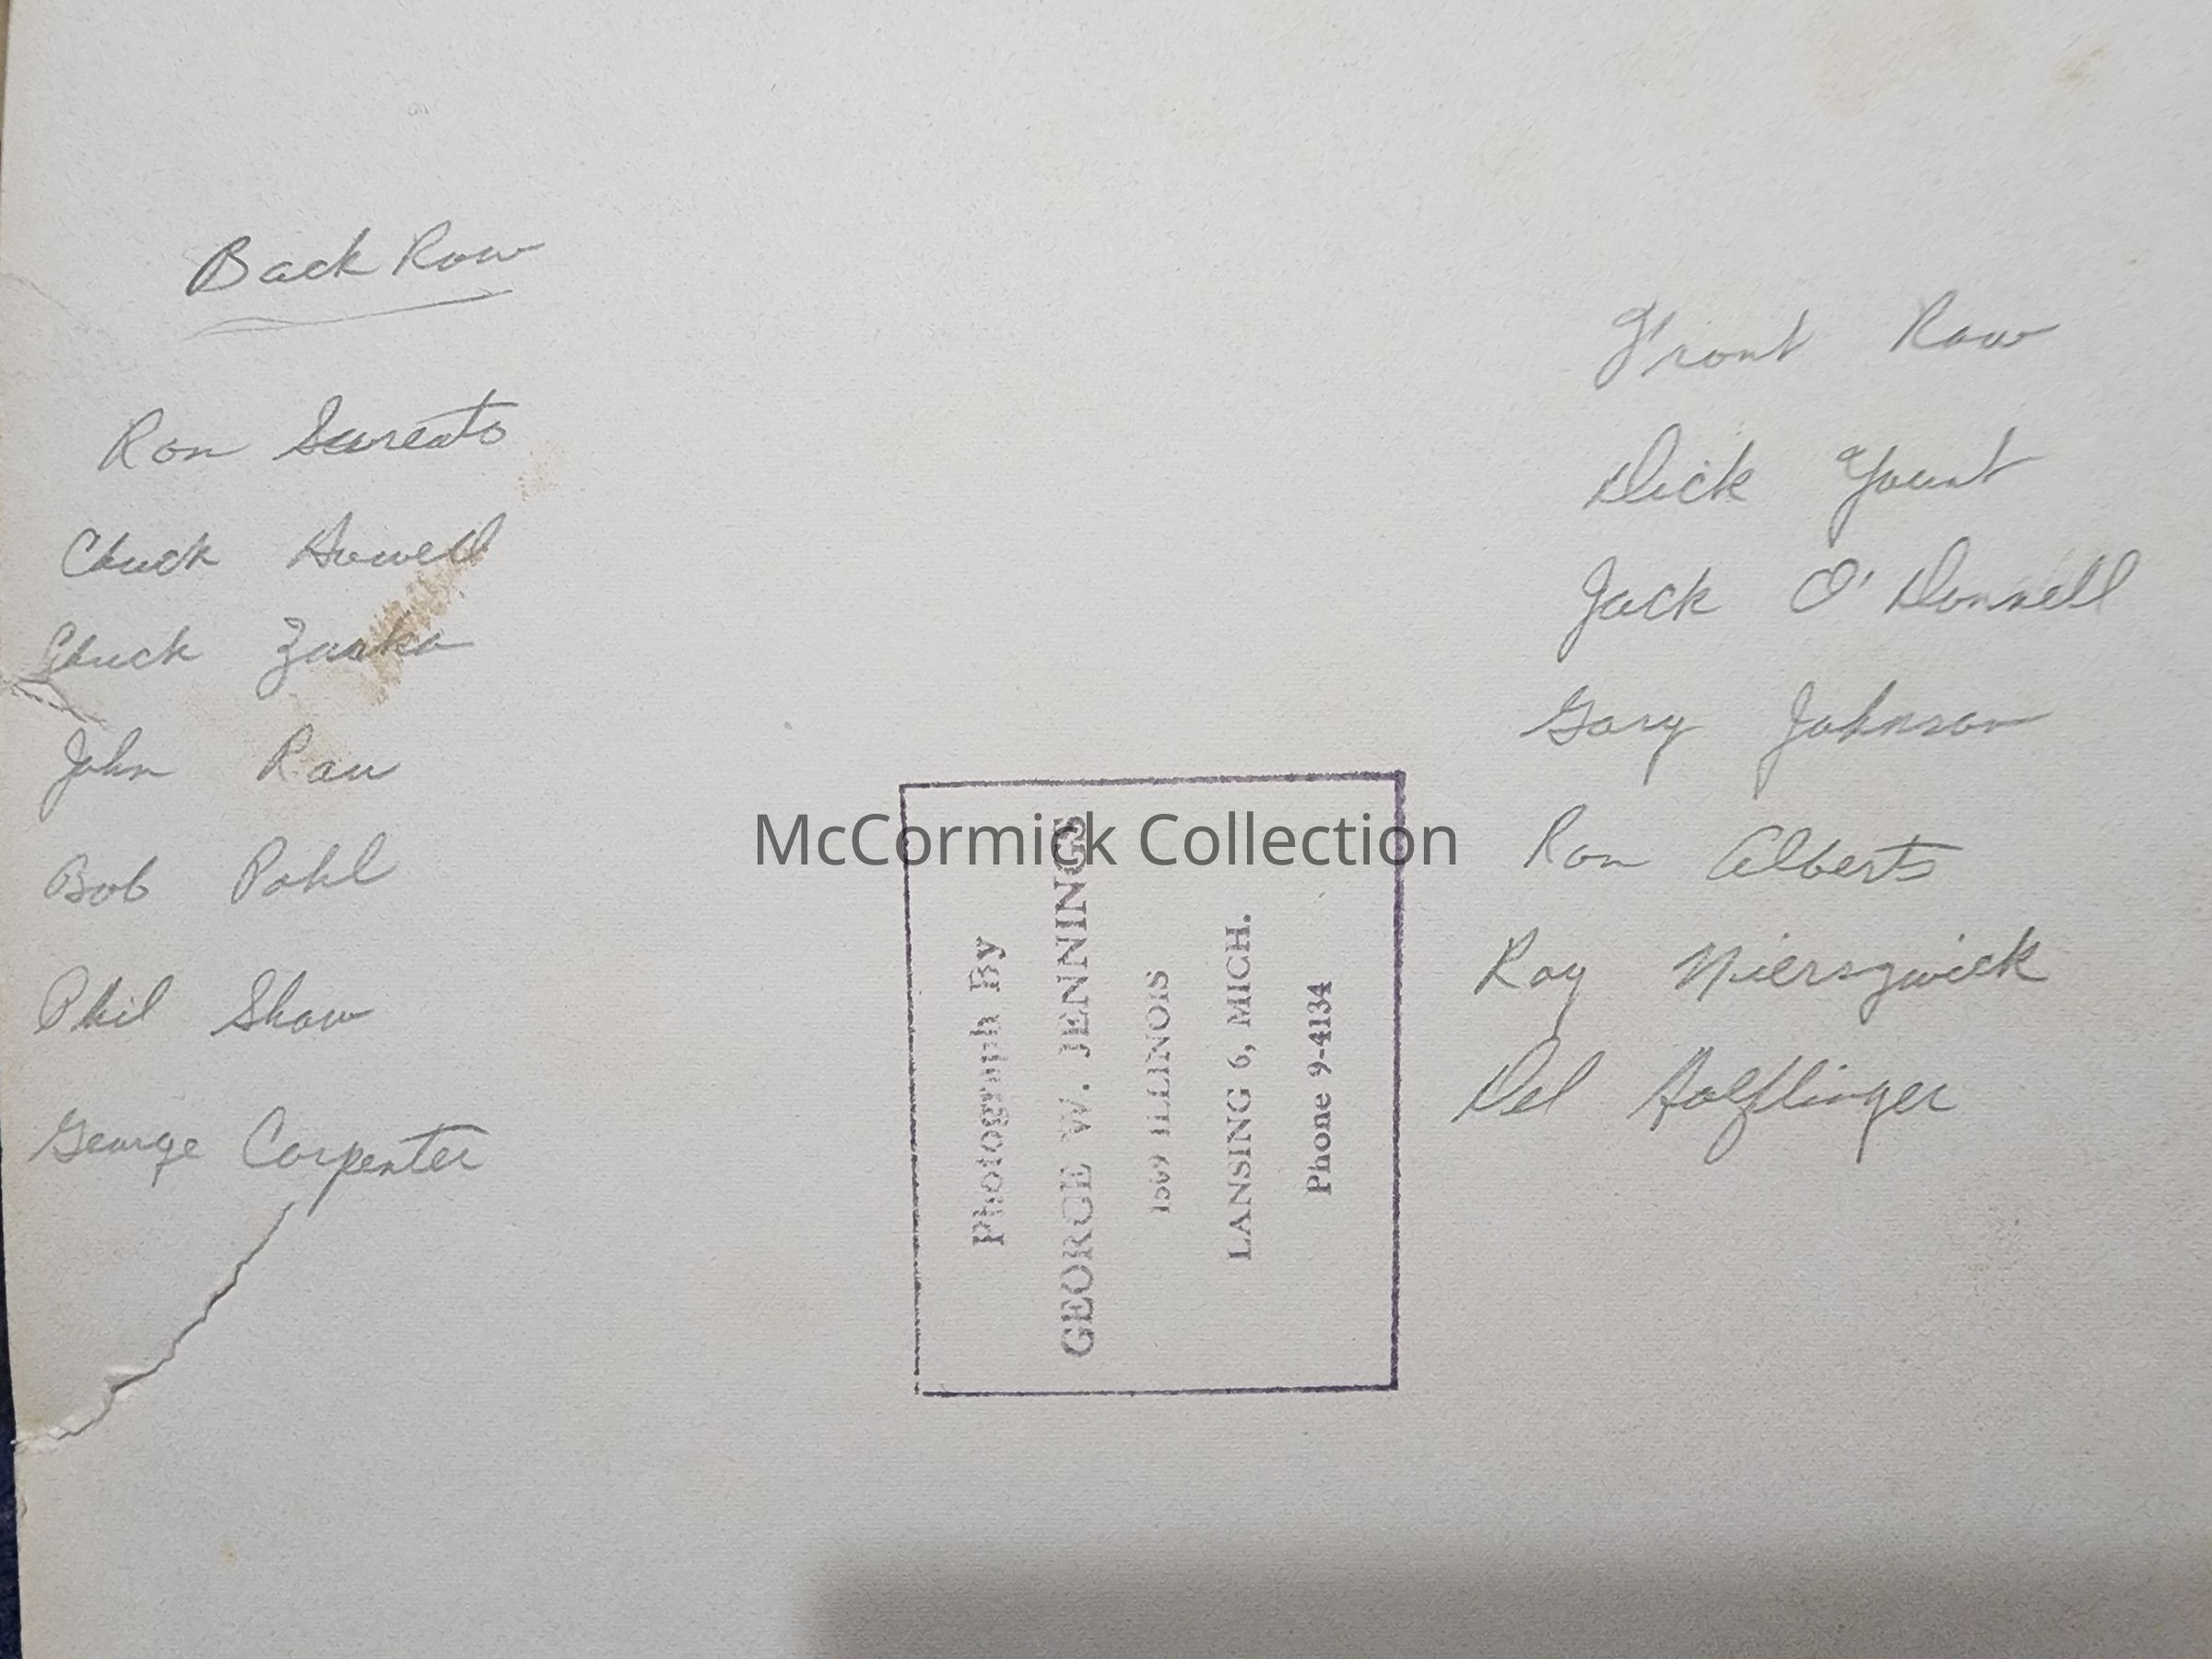 Back Row
Ron
Chuck Howell
Chuck
John Rau
Bob Pohl
Phil Shaw
George Carpenter
Front Row
Dick Yount
Jack O'Donnell
Gary Johnson
Ron Alberts
Ray Nierzwick
Del
McCormick Collection
Photograph By
GEORGE W. JENNINGS
1509 ILLINOIS
LANSING 6, MICH.
Phone 9-4134